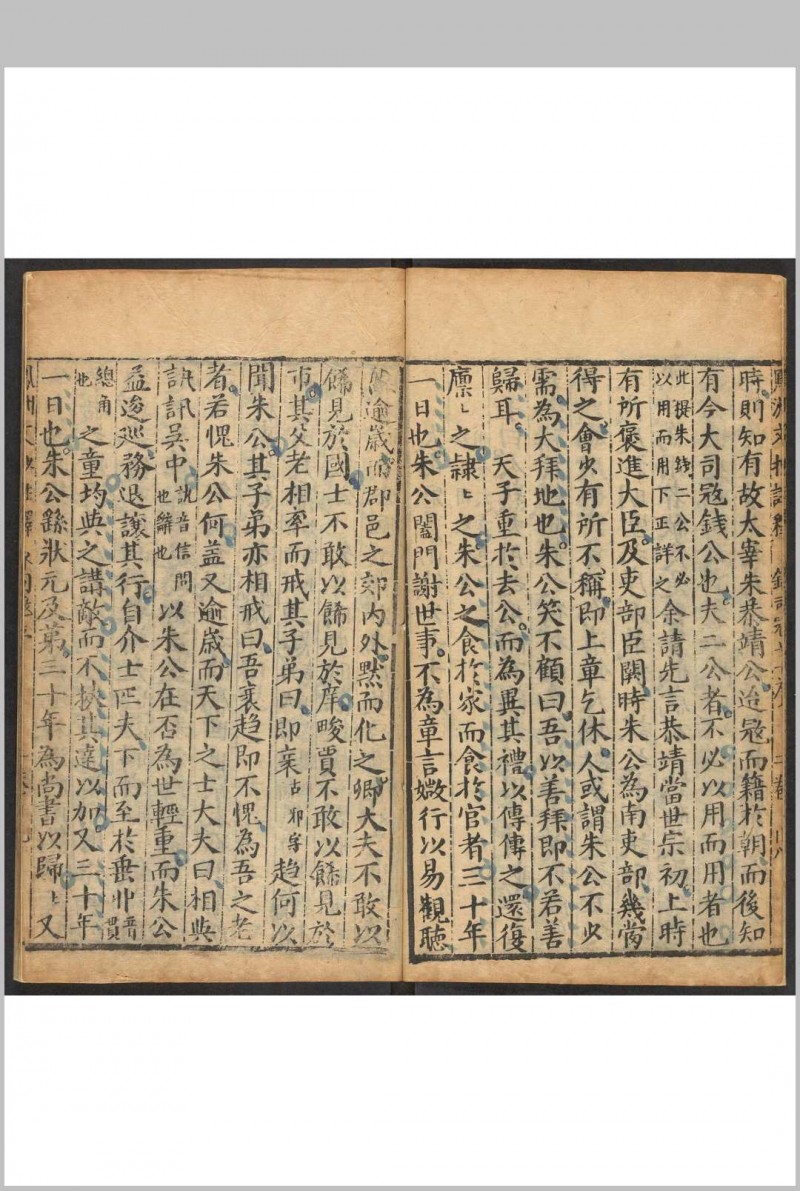 時則知有故太宰朱恭靖公迨冦而籍於朝而後知
有今大司冦錢公也夫二公者不必以用而用者也
此提朱錢二公不必以用而用下正詳之余請先言恭靖當世宗初上時
有所褒進大臣及吏部臣闕時朱公為南吏部幾當
得之會少有所不稱即上章乞休人或謂朱公不少
需為大拜地也朱公笑不顧曰吾以善拜即不若善
歸耳 天子重於去公而為異其禮以傳傳之還復
廪〻之隷〻之朱公之食於家而食於官者三十年
一日也朱公闔門謝世事不為章言媺行以易觀聽
逾歲而郡邑之郊內外默而化之卿大夫不敢以
餙見於國士不敢以餙見於庠畯賈不敢以餙見於
市其父老相率而戒其子弟曰即衺古邪字趍何以
聞朱公其子弟亦相戒曰吾衺趍即不愧為吾之老
者若愧朱公何盖又逾歲而天下之士大夫曰相與
訊吳中訊音信問也辭也以朱公在否為世輕重而朱公
益逡廵務退讓其行自介士匹夫下而至於垂丱音貫
總角也之童均與之講敵而不挾其達以加又三十年
一日也朱公繇狀元及第三十年為尚書以歸〻又